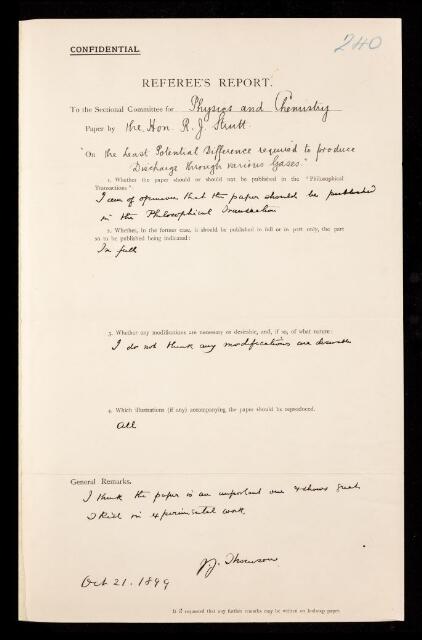 CONFIDENTIAL.
240
REFEREE'S REPORT.
To the Sectional Committee for Physics and Chemistry
Paper by the Hon. R. J. Strutt.
"On the Least Potential Difference required to produce
Discharge through various Gases."
1. Whether the paper should or should not be published in the "Philosophical
Transactions":
I am of opinion that the paper should be published
in the Philosophical Transactions
2. Whether, in the former case, it should be published in full or in part only, the part
so to be published being indicated:
In full
3. Whether any modifications are necessary or desirable, and, if so, of what nature:
I do not think any modifications are desirable
4. Which illustrations (if any) accompanying the paper should be reproduced.
All
General Remarks.
I think the paper is an important one & shows great
skill in experimental work
J.J. Thomson
Oct 21. 1899
It is requested that any further remarks may be written on foolscap paper.